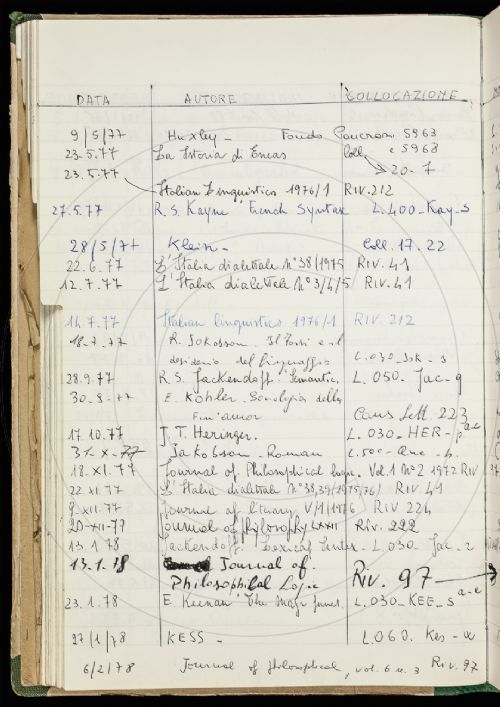 DATA AUTORE COLLOCAZIONE
9/5/77 Huxley - Fondo Pancrazi 5963
23.5.77 La Istoria di Eneas Coll. e 5968
23.5.77 20-7
Italian Linguistics 1976/1 RIV.212
27.5.77 R.S. Kayne French Syntax L.400-Kay-S
28/5/77 Klein - Coll. 17.22
22.6.77 L'Italia dialettale n°38/1975 RIV.41
12.7.77 L'Italia dialettale n°3/4/5 RIV.41
14.7.77 Italian linguistics 1976/1 RIV.212
18.7.77 R. Jakobson. Il
del linguaggio L.030-Jak-s
28.9.77 R.S. Jackendoff. Semantic. L.050-Jac-g
30-9-77 E. Köhler - Sociologia della
Fin'amor Caus Lett. 223
17.10.77 J.T. Heringer. L.030-HER-p a-c
31-X-77 Jakobson - Roman
18-XI.77 Journal of Philosophical Logic. Vol.1 N°2 1972 RIV
22 XI.77 L'Italia dialettale n°38,39 (1975,76) RIV 41
9.XII.77 Journal of literary V/1(1976) RIV 224
20-XII-77 Journal of philosophy LXXII Riv. 222
13.1.78 Jackendoff. L.030 Jac-2
13.1.78 Journal of.
Philosophical Logic Riv. 97
23.1.78 E. Keenan L.030-KEE-S a-c
27/1/78 KESS - L.060. Kes-
6/2/78 Journal of philosophical, vol. 6 n. 3 Riv. 97